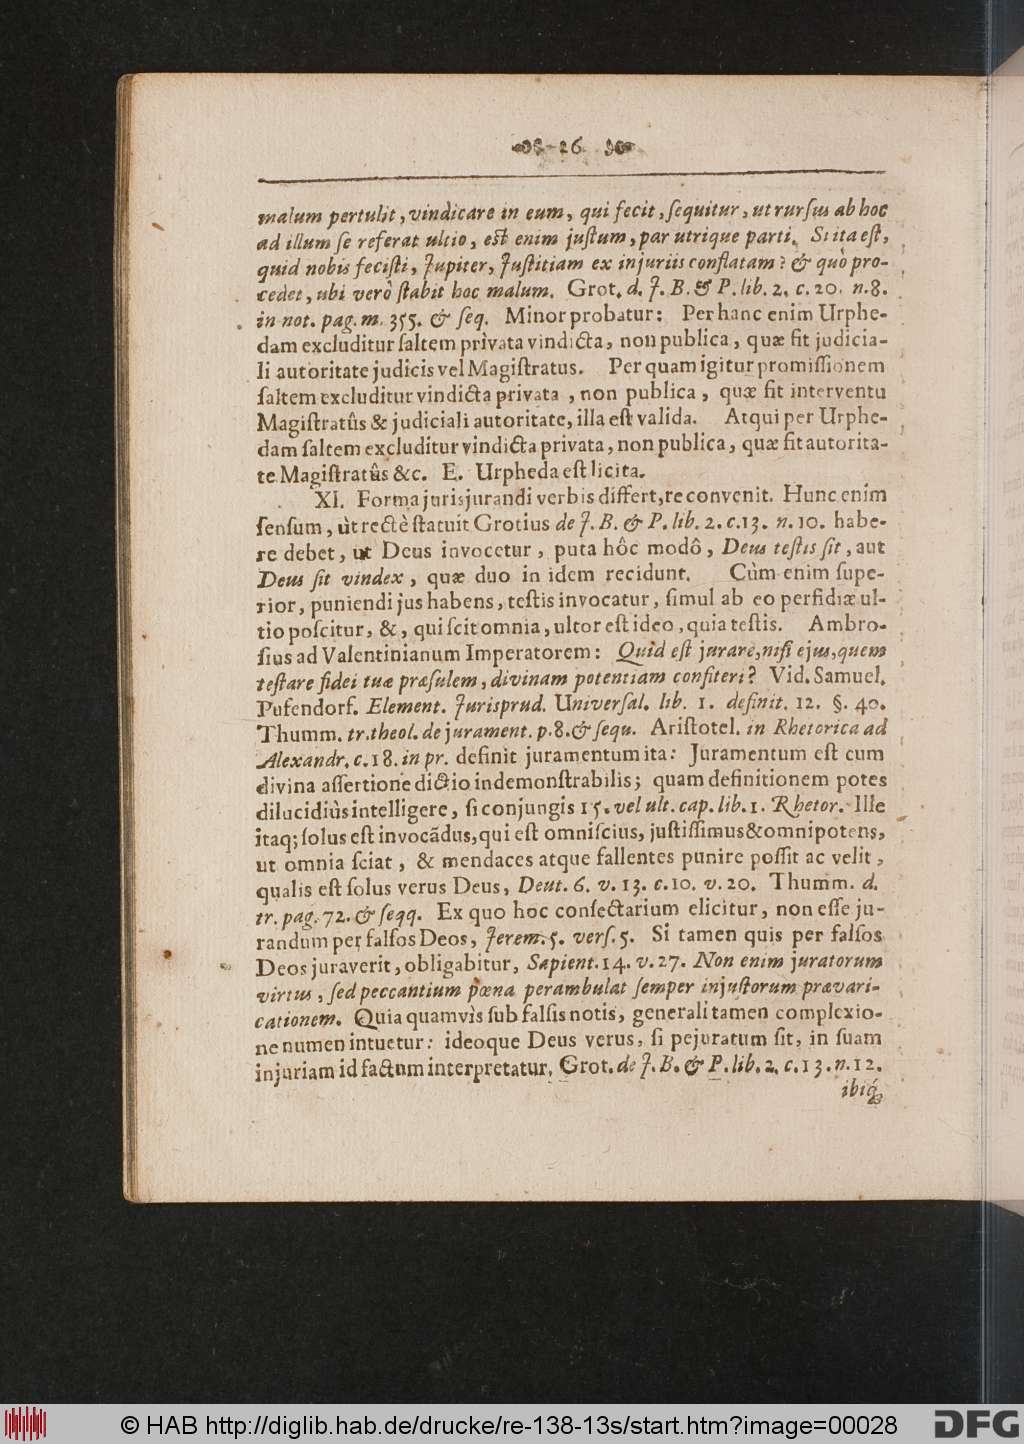 26
malum pertulit, vindicare in eum, qui fecit, ſequitur, ut rurſus ab hoc
ad illum ſe referat ultio, eſt enim juſtum, par utrique parti. Si ita eſt,
quid nobis feciſti, Jupiter, Juſtitiam ex injuriis conflatam? & quò pro-
cedet, ubi verò ſtabit hoc malum. Grot. d. J. B. & P. lib. 2. c. 20. n. 8.
in not. pag. m. 355. & ſeq. Minor probatur: Per hanc enim Urphe-
dam excluditur ſaltem privata vindicta, non publica, quæ fit judicia-
li autoritate judicis vel Magiſtratus. Per quam igitur promiſſionem
ſaltem excluditur vindicta privata, non publica, quæ fit interventu
Magiſtratûs & judiciali autoritate, illa eſt valida. Atqui per Urphe-
dam ſaltem excluditur vindicta privata, non publica, quæ fit autorita-
te Magiſtratûs &c. E. Urpheda eſt licita.
XI. Forma jurisjurandi verbis differt, re convenit. Hunc enim
ſenſum, ùt rectè ſtatuit Grotius de J. B. & P. lib. 2. c. 13. n. 10. habe-
re debet, ut Deus invocetur, puta hôc modô, Deus teſtis ſit, aut
Deus ſit vindex, quæ duo in idem recidunt. Cùm enim ſupe-
rior, puniendi jus habens, teſtis invocatur, ſimul ab eo perfidiæ ul-
tio poſcitur, &, qui ſcit omnia, ultor eſt ideo, quia teſtis. Ambro-
ſius ad Valentinianum Imperatorem: Quid eſt jurare, niſi ejus, quem
teſtare fidei tuæ præſulem, divinam potentiam confiteri? Vid. Samuel.
Pufendorf. Element. Jurisprud. Univerſal. lib. 1. definit. 12. §. 40.
Thumm. tr. theol. de jurament. p. 8. & ſequ. Ariſtotel. in Rhetorica ad
Alexandr. c. 18. in pr. definit juramentum ita: Juramentum eſt cum
divina aſſertione dictio indemonſtrabilis; quam definitionem potes
dilucidiùs intelligere, ſi conjungis 15. vel ult. cap. lib. 1. Rhetor. Ille
itaq; ſolus eſt invocãdus, qui eſt omniſcius, juſtiſſimus & omnipotens,
ut omnia ſciat, & mendaces atque fallentes punire poſſit ac velit,
qualis eſt ſolus verus Deus, Deut. 6. v. 13. c. 10. v. 20. Thumm. d.
tr. pag. 72. & ſeqq. Ex quo hoc conſectarium elicitur, non eſſe ju-
randum per falſos Deos, Jerem. 5. verſ. 5. Si tamen quis per falſos
Deos juraverit, obligabitur, Sapient. 14. v. 27. Non enim juratorum
virtus, ſed peccantium pœna perambulat ſemper injuſtorum prævari-
cationem. Quia quamvìs ſub falſis notis, generali tamen complexio-
ne numen intuetur: ideoque Deus verus, ſi pejuratum ſit, in ſuam
injuriam id factum interpretatur, Grot. de J. B. & P. lib. 2. c. 13. n. 12.
ibiq́;
© HAB http://diglib.hab.de/drucke/re-138-13s/start.htm?image=00028
DFG